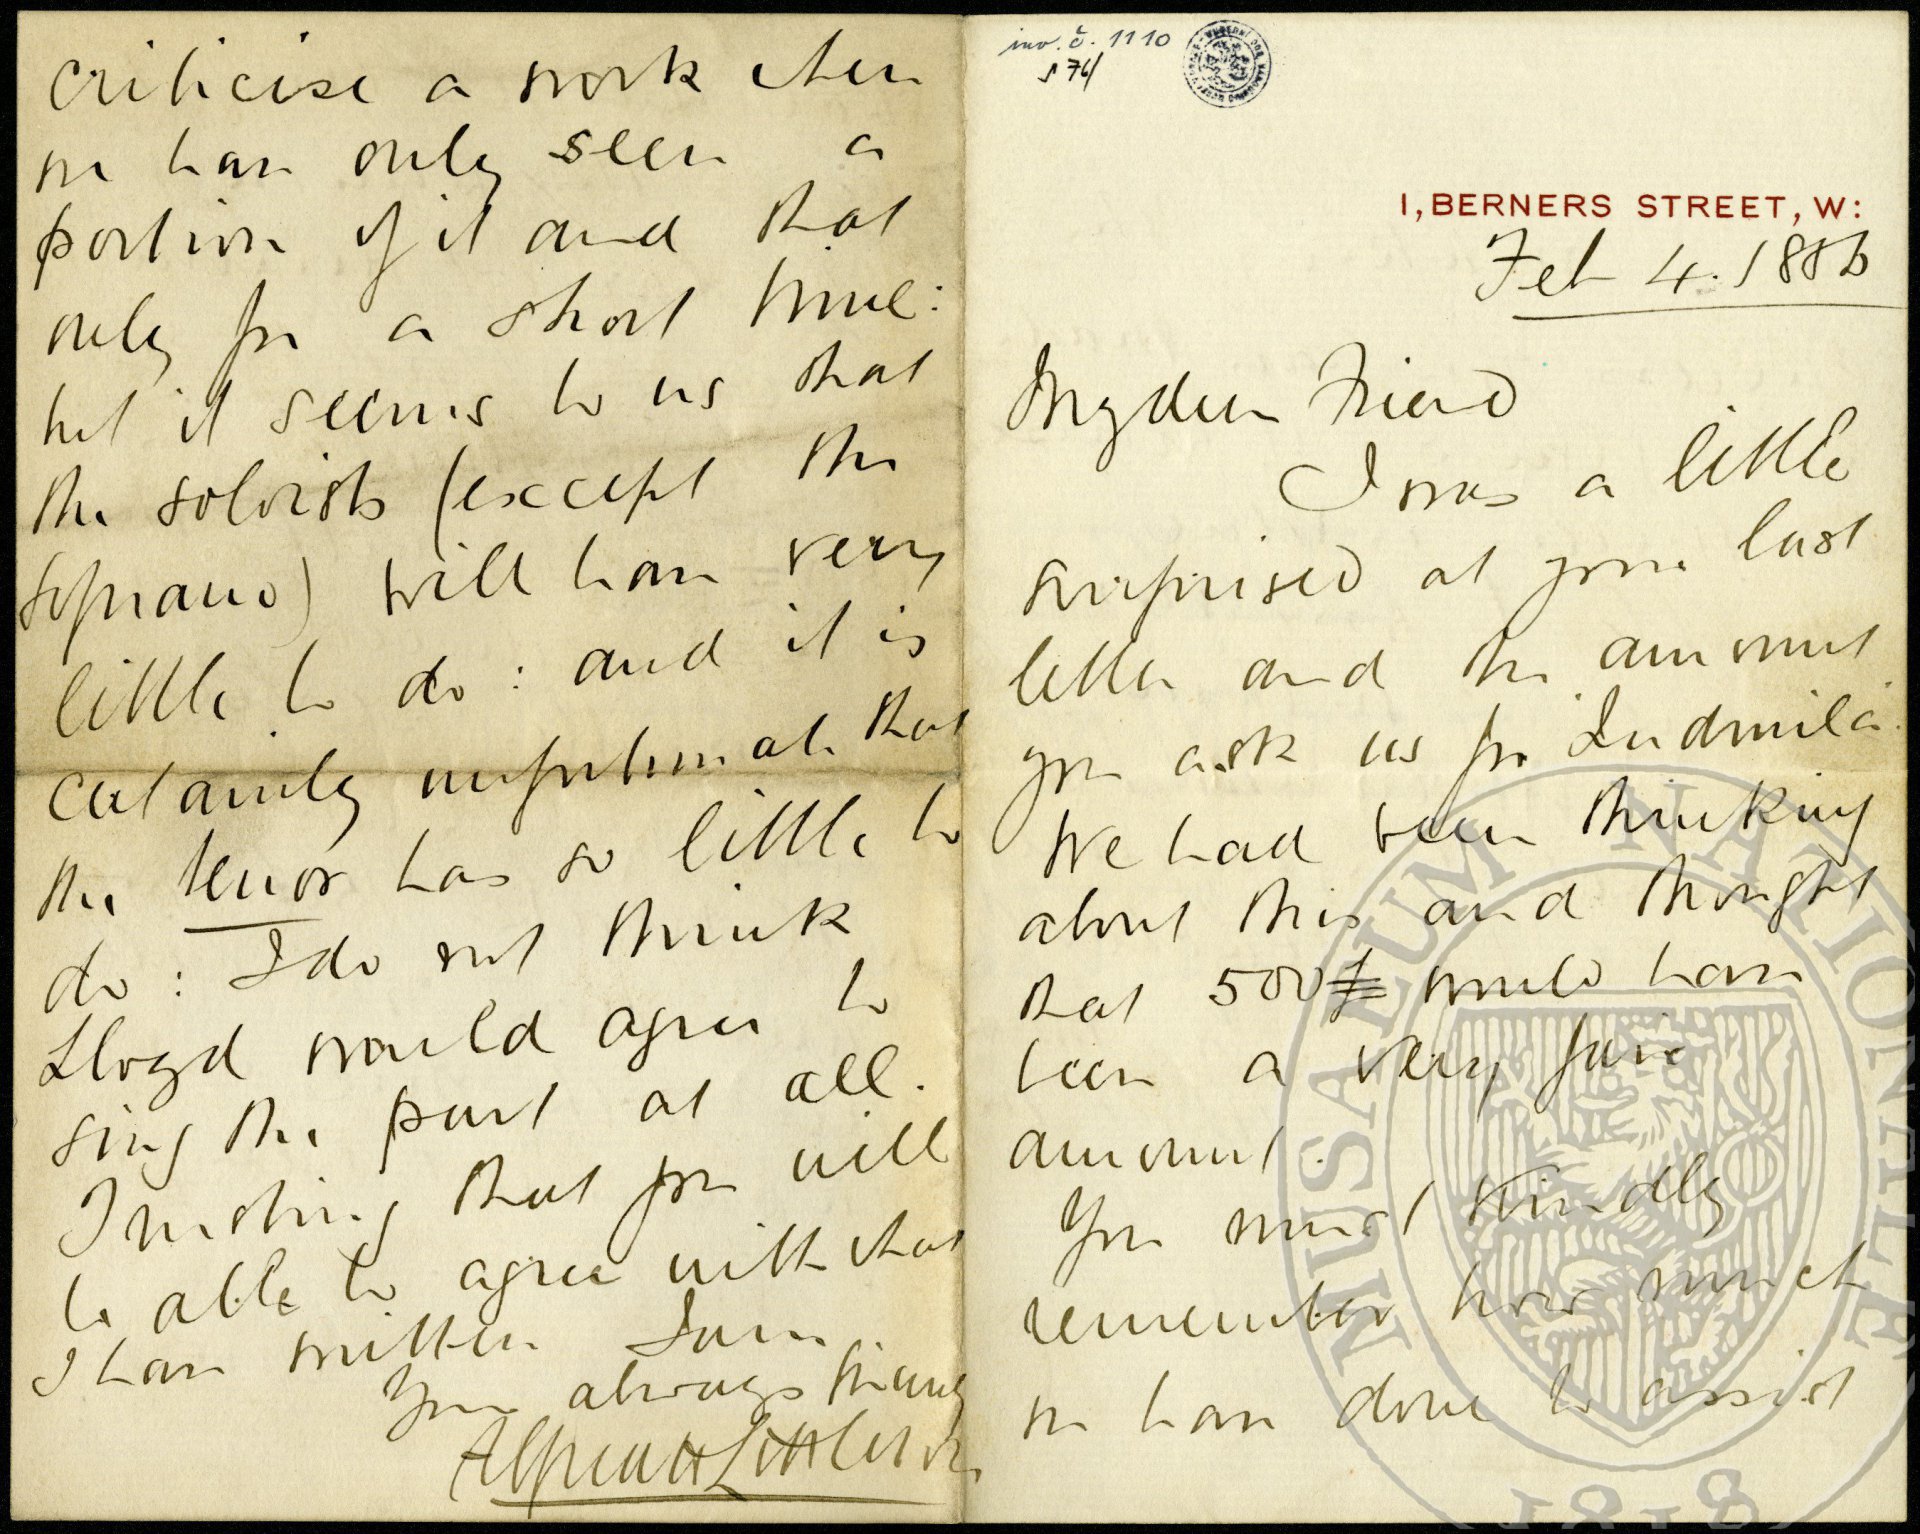 inv. č. 1110
s 76/
1, BERNERS STREET, W:
Feb 4. 1886
My dear Friend
I was a little
surprised at your last
letter and the amount
you ask us for Ludmila.
We had been thinking
about this and thought
that 500£ would have
been a very fair
amount.
You must kindly
remember how much
we have done to assist
criticise a work when
we have only seen a
portion of it and that
only for a short time:
but it seems to us that
the soloists (except the
soprano) will have very
little to do: and it is
certainly unfortunate that
the tenor has so little to
do: I do not think
Lloyd would agree to
sing the part at all.
Trusting that you will
be able to agree with what
I have written I am
Yours always sincerely
Alfred H Littleton
MUSAEUM NATIONALE
1818